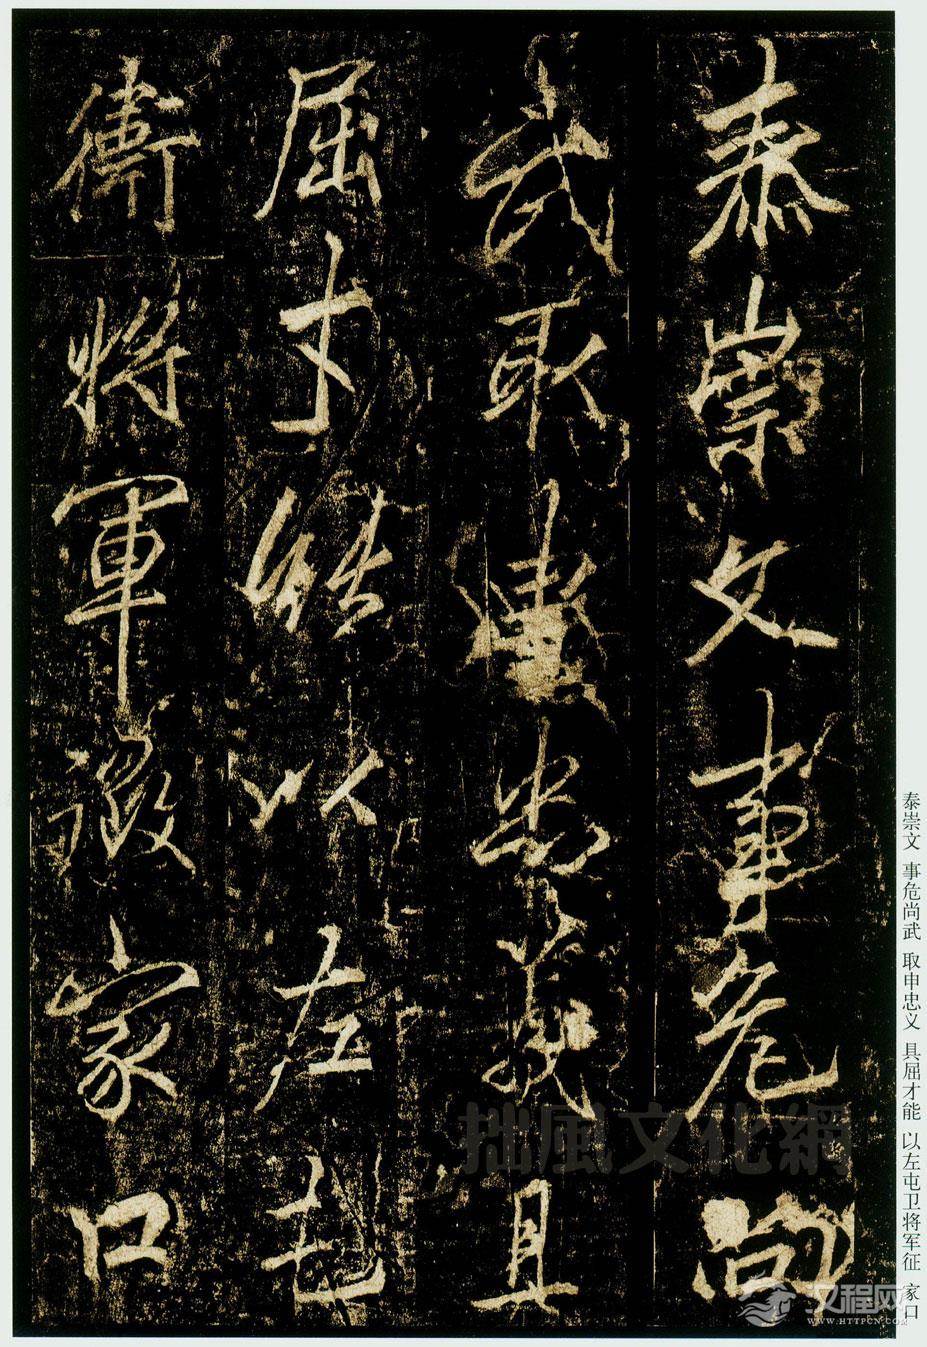 泰崇文事危尚
武取忠義具
屈才能以左屯
衛將軍徵家口
泰崇文 事危尚武 取申忠义 具屈才能 以左屯卫将军征 家口
拙風文化網
汉程网
WWW.HTTPCN.COM